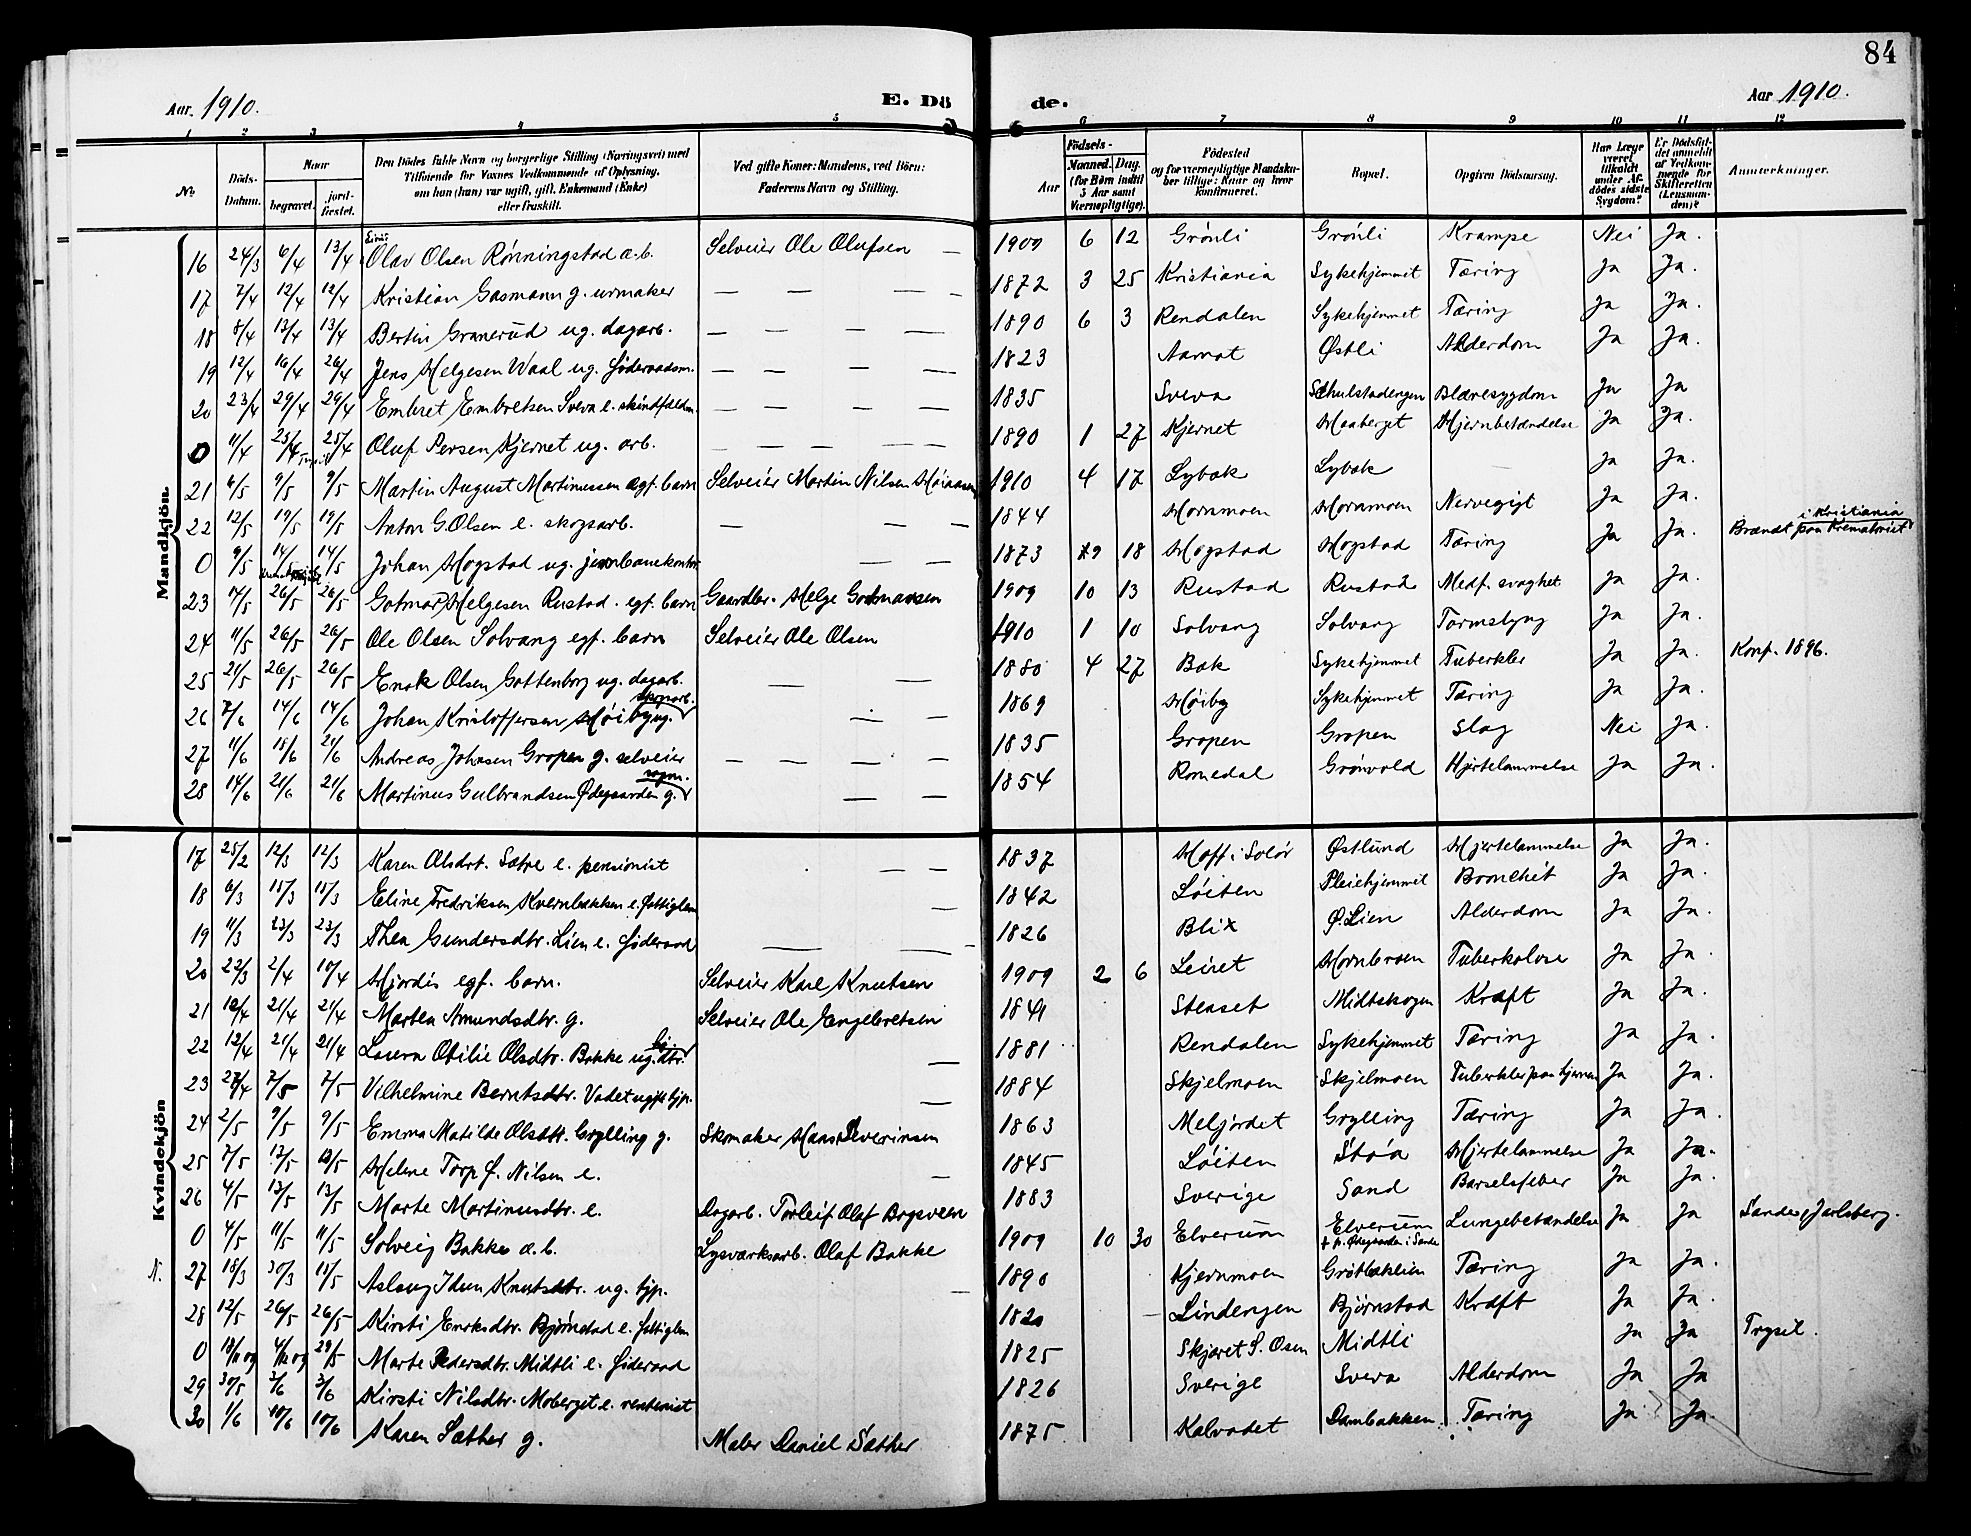 84
Aar 1910.
E. Dö
de.
Aar 1910.
1 2 3 4 5 6 7 8 9 10 11 12
No
Döds-Datum.
Naar
begravet.
jord-fæstet.
Den Dödes fulde Navn og borgerlige Stilling (Næringsvei) med
Tilföiende for Voxnes Vedkommende af Oplysning,
om han (hun) var ugift, gift, Enkemand (Enke)
eller fraskilt.
Ved gifte Koner: Mandens, ved Börn:
Faderens Navn og Stilling.
Födsels-
Aar
Maaned. Dag.
(for Børn indtil
3 Aar samt
Værnepligtige).
Födested
og for værnepligtige Mandsku-
ber tillige: Naar og hvor
konfirmeret.
Bopæl.
Opgiven Dödsaarsag.
Har Læge
været
tilkaldt
under Af-
dödes sidste
Sygdom?
Er Dödsfal-
det anmeldt
af Vedkom-
mende for
Skifteretten
(Lensman-
den)?
Anmærkninger.
Mandkjön.
16 24/3 6/4 13/4 Olav Olsen Rønningstad a.b. Selveier Ole Olufsen — 1909 6 12 Grönli Grönli Krampe Nei Ja.
17 7/4 12/4 12/4 Kristian Gasmann g. urmaker — — — — 1872 3 25 Kristiania Sykehjemmet Tæring Ja Ja.
18 8/4 13/4 13/4 Bertin Granerud ug. dagarb. — — — — 1890 6 3 Rendalen Sykehjemmet Tæring Ja Ja.
19 12/4 16/4 26/4 Jens Helgesen Waal ug. föderaadsm. — — — — 1823 Aamot Østli Alderdom Ja Ja.
20 23/4 29/4 29/4 Embret Embretsen Sveva e. skindfældm. — — — — 1835 Sveva Schulstadengen Blæresygdom Ja Ja
0 11/4 25/4 25/4 Oluf Persen Kjernet ug. arb. — — — — 1890 1 27 Kjernet Haaberget Hjernbetændelse Ja Ja.
21 6/5 9/5 9/5 Martin August Martinussen egf. barn Selveier Martin Nilsen 1910 4 17 Lybæk Lybæk — Ja Ja.
22 12/5 19/5 19/5 Anton G. Olsen e. skogsarb. — — — 1844 Hornmoen Hornmoen Nervegigt Ja Ja.
0 9/5 14/5 14/5 Johan Hogstad ug. jernbanekontor — — 1873 9 18 Hogstad Hogstad Tæring Ja Ja. Brændt paa Krematoriet i Kristiania
23 7/5 26/5 26/5 Gotmar Helgesen Rustad. egf. barn Gaardbr. Helge Gotmarsen 1909 10 13 Rustad Rustad Medf. svaghet Ja Ja.
24 11/5 26/5 26/5 Ole Olsen Solvang egf. barn Selveier Ole Olsen 1910 1 10 Solvang Solvang Tarmslyng Ja Ja.
25 21/5 26/5 26/5 Enok Olsen Gottenborg ug. dagarb. — — 1880 4 27 Bæk Sykehjemmet Tuberkler Ja Ja. Konf. 1896.
26 7/6 14/6 14/6 Johan Kristoffersen Höiby ug. skogarb. — — 1869 Höiby Sykehjemmet Tæring Ja Ja.
27 11/6 18/6 21/6 Andreas Johnsen Gropen g. selveier — — — — 1835 Gropen Gropen Slag Nei Ja.
28 14/6 21/6 21/6 Martinus Gulbrandsen Ødegaarden g. — — 1854 Romedal Grönvold Hjertelammelse Ja Ja.
Kvindekjön
17 25/2 12/3 12/3 Karen Olsdtr. Sætre e. pensionist — — 1837 Hoff i Solör Østlund Hjertelammelse Ja Ja.
18 6/3 15/3 15/3 Eline Fredriksen Kvernbakken e. fattiglem — 1842 Löiten Pleiehjemmet Bronchit Ja Ja.
19 11/3 23/3 23/3 Thea Gundersdtr. Lien e. föderaad — — — 1826 Blix Ø. Lien Alderdom Ja Ja.
20 22/3 2/4 10/4 Hjordis egf. barn. Selveier Karl Knutsen 1909 2 6 Leiret Hornbroen Tuberkulose Ja Ja.
21 12/4 21/4 21/4 Martea Amundsdtr. g. Selveier Ole Engebretsen 1841 Stenset Midtskogen Kræft Ja Ja.
22 12/4 21/4 21/4 Laura Otilie Olsdtr. Bakke ug. — 1881 Rendalen Sykehjemmet Tæring Ja Ja.
23 27/4 7/5 7/5 Vilhelmine Berntsdtr. Vadet ug. tjp. — 1884 Skjelmoen Skjelmoen Tuberkler paa hjernen Ja Ja.
24 2/5 9/5 9/5 Emma Matilde Olsdtr. Grylling g. Skomaker Hans Severinsen 1863 Meljordet Grylling Tæring Ja Ja.
25 7/5 12/5 12/5 Helene Torp f. Nilsen e. — 1845 Löiten Støa Hjertelammelse Ja Ja.
26 4/5 13/5 13/5 Marte Martinusdtr. e. Dagarb. Torleif Olaf Bogsveen 1883 Sverige Sand Barselsfeber Ja Ja.
0 4/5 11/5 11/5 Solveig Bakke a.b. Lysværksarb. Olaf Bakke 1909 10 30 Elverum Elverum Lungebetændelse Ja Ja Sande, Jarlsberg.
† p. Ødegaarden i Sande
N. 27 18/3 30/3 15/5 Aslaug Idun Knutsdtr. ug. tjp. — 1890 Kjernmoen Grötbæklien Tæring Ja Ja.
28 12/5 26/5 26/5 Kirsti Eriksdtr. Bjørnstad e. fattiglem 1820 — Lindengen Bjørnstad Kræft Ja Ja.
0 29/5 Marte Pedersdtr. Midtli e. föderaad 1825 Skjæret S. Osen Midtli Ja Ja Trysil.
29 30/5 3/6 3/6 Kirsti Nilsdtr. Moberget e. rentenist 1826 Sverige Svera Alderdom Ja Ja
30 1/6 10/6 10/6 Karen Sæther g. Maler Daniel Sæther 1875 Kalvadet Dambakken. Tæring Ja Ja.